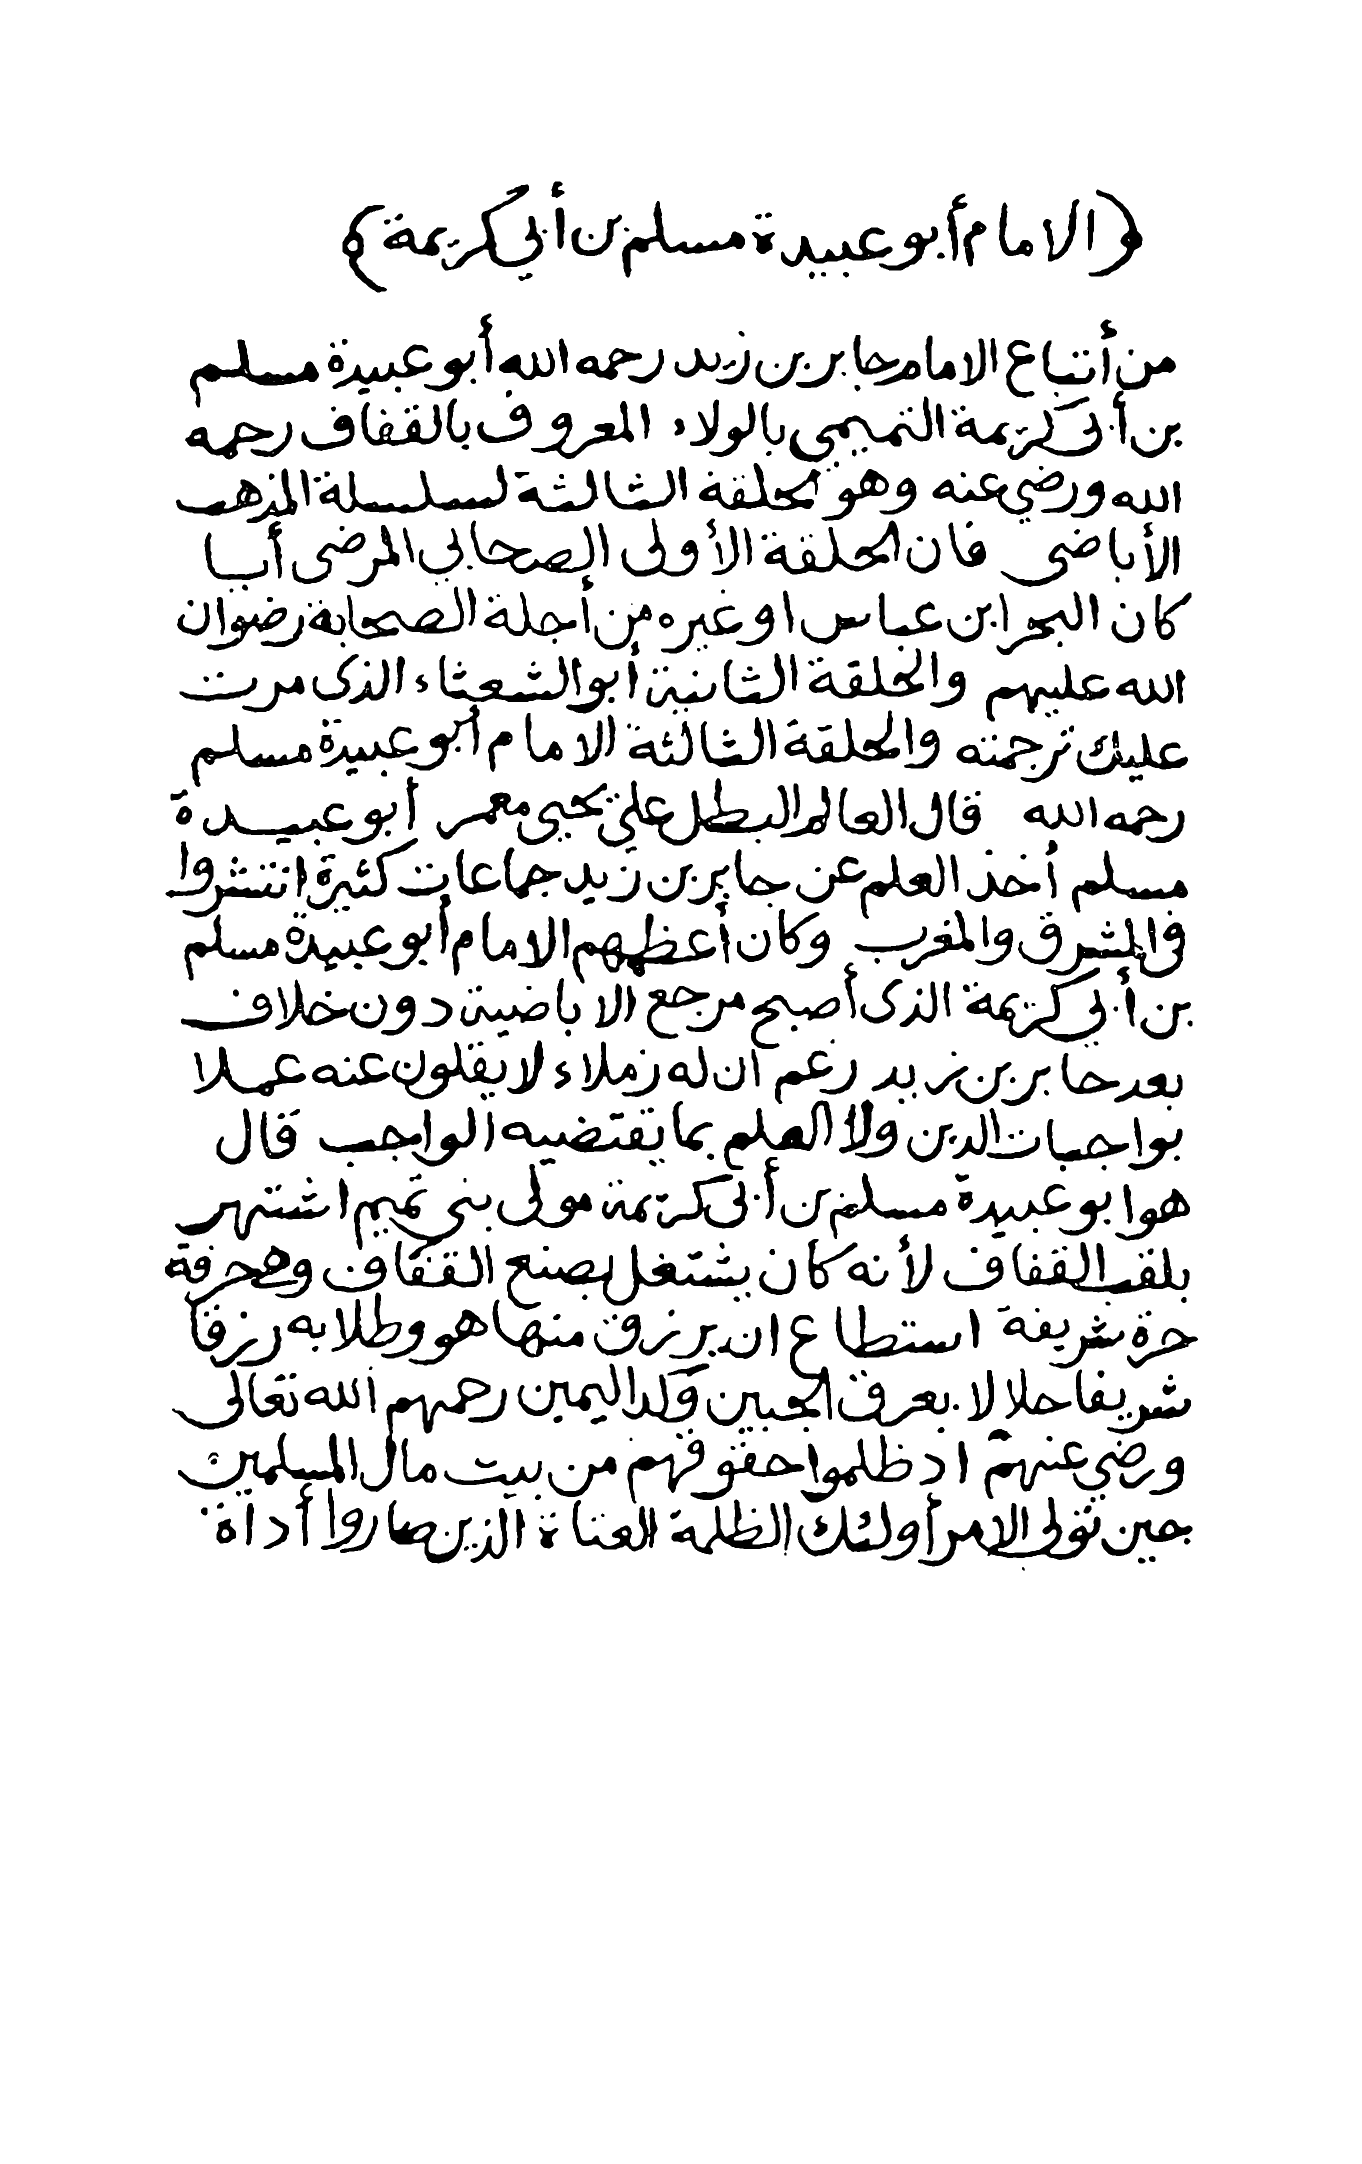 ﴿الامام أبو عبيدة مسلم بن أبي كريمة﴾
من أتباع الامام جابر بن زيد رحمه الله أبو عبيدة مسلم
بن أبي كريمة التميمي بالولاء المعروف بالقفاف رحمه
الله ورضي عنه وهو الحلقة الثالثة لسلسلة المذهب
الأباضى فان الحلقة الأولى الصحابي المرضى أيا
كان البحر ابن عباس او غيره من أجلة الصحابة رضوان
الله عليهم والحلقة الثانية أبو الشعثاء الذى مرت
عليك ترجمته والحلقة الثالثة الامام أبو عبيدة مسلم
رحمه الله قال العالم البطل علي يحيى معمر أبو عبيدة
مسلم أخذ العلم عن جابر بن زيد جماعات كثيرة انتشروا
في المشرق والمغرب وكان أعظمهم الامام أبو عبيدة مسلم
بن أبي كريمة الذى أصبح مرجع الاباضية دون خلاف
بعد جابر بن زيد رغم ان له زملاء لا يقلون عنه عملا
بواجبات الدين ولا العلم بما يقتضيه الواجب قال
هو ابو عبيدة مسلم بن أبى كريمة مولى بني تميم اشتهر
بلقب القفاف لأنه كان يشتغل بصنع القفاف وهى حرفة
حرة شريفة استطاع ان يرزق منها هو وطلابه رزقا
شريفا حلالا بعرق الجبين وكد اليمين رحمهم الله تعالى
ورضي عنهم اذ ظلموا حقوقهم من بيت مال المسلمين
حين تولى الامر أولئك الظلمة العتاة الذين صاروا أداة